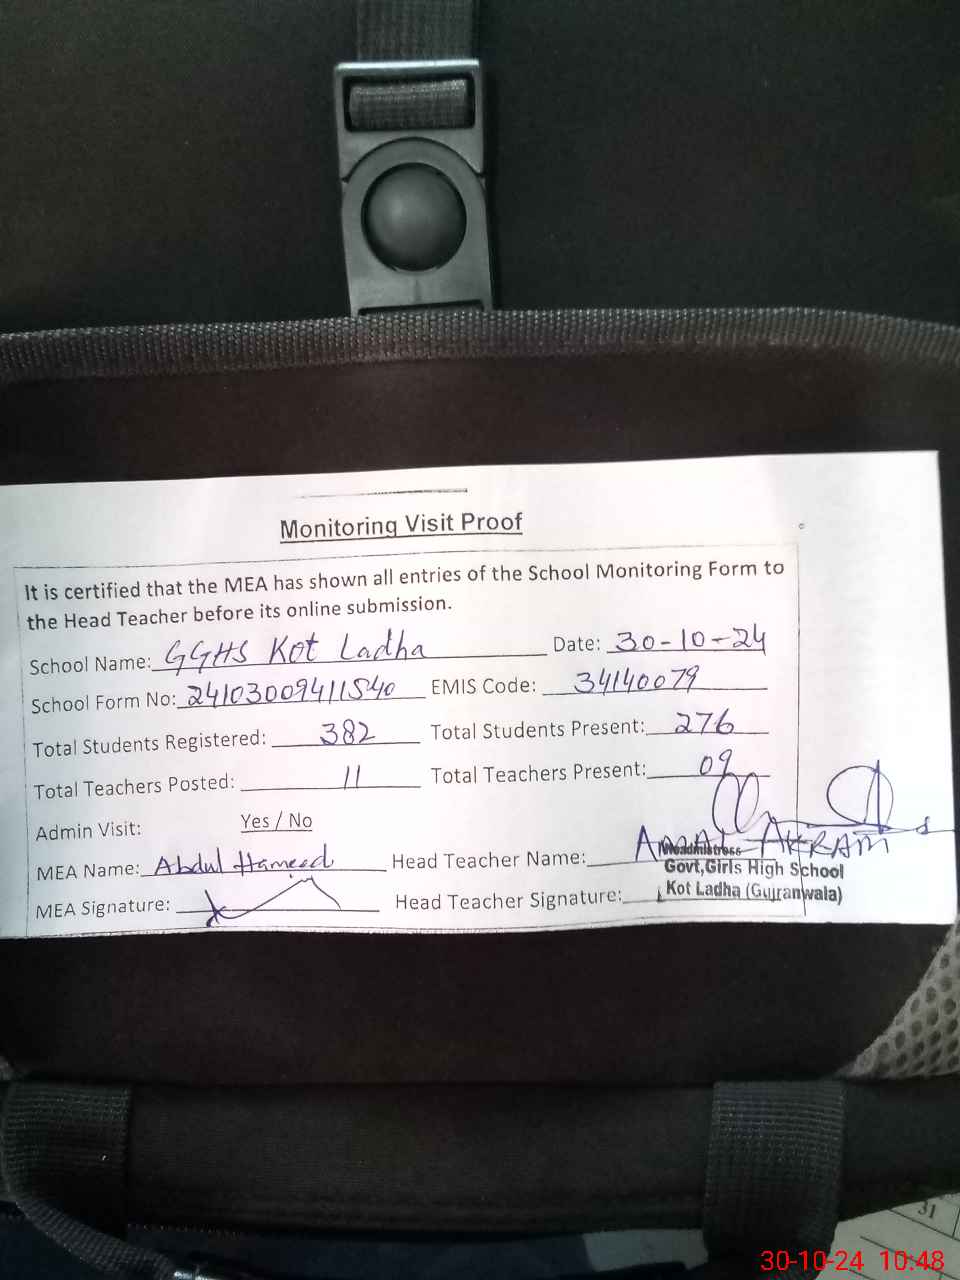 Monitoring Visit Proof
It is certified that the MEA has shown all entries of the School Monitoring Form to
the Head Teacher before its online submission.
School Name: GGHS Kot Ladha Date: 30-10-24
School Form No: 24103009411540 EMIS Code: 34140079
Total Students Registered: 382 Total Students Present: 276
Total Teachers Posted: 11 Total Teachers Present: 09
Admin Visit: Yes / No
MEA Name: Abdul Hameed Head Teacher Name: AMAL AKRAM
Headmistress
Govt,Girls High School
MEA Signature: Head Teacher Signature:
Kot Ladha (Gujranwala)
31
30-10-24 10:48